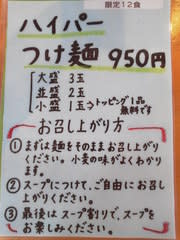 限定12食
ハイパー
つけ麺 950円
大盛 3玉
並盛 2玉
小盛 1玉⇒トッピング1品
無料です
お召し上がり方
①まずは麺をそのままお召し上がり
ください。小麦の味がよくわかり
ます。
②スープにつけて、ご自由にお召し
上がりください。
③最後はスープ割りで、スープを
お楽しみください。